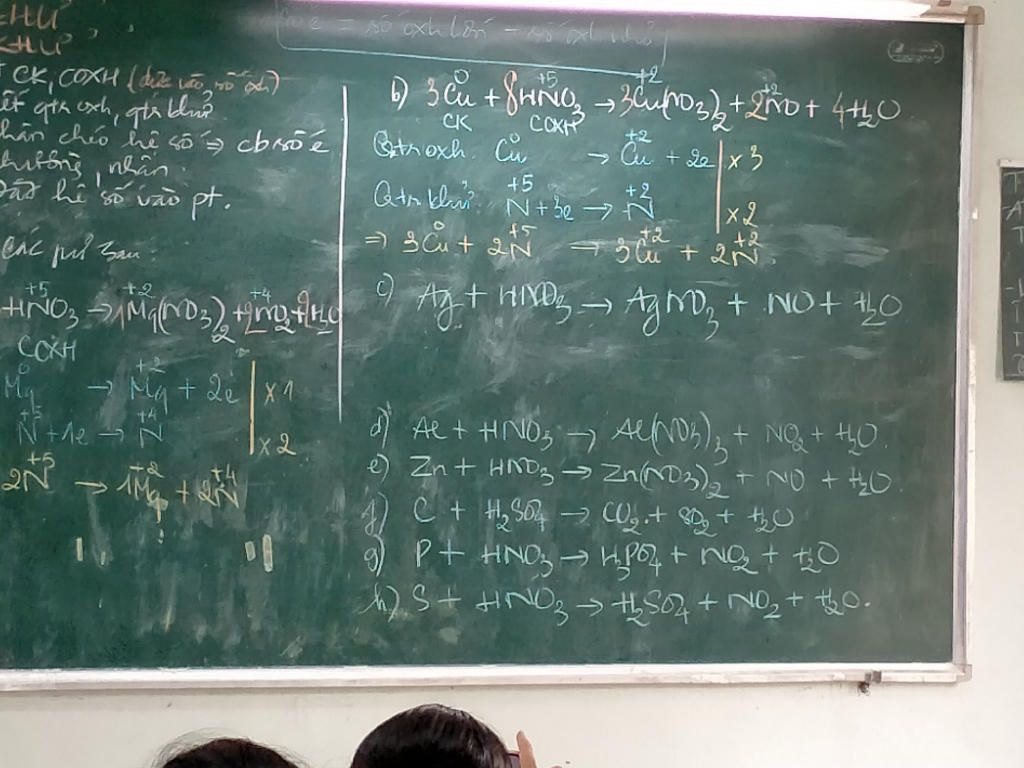 KHỬ
KHỬ
CK, COXH (dựa vào số oxh)
qtr oxh, qtr khử
hân chéo hệ số ⇒ cb số é
hương, nhân.
hệ số vào pt.
các pứ sau:
+5 +2 +4
HNO₃ → 1Mg(NO₃)₂ + 2NO₂ + 2H₂O
COXH
0 +2
Mg → Mg + 2e | x 1
+5 +4
N + 1e → N | x 2
+5 +2 +4
2N → 1Mg + 2N
= số oxh lớn - số oxh nhỏ
0 +5 +2 +2
b) 3Cu + 8HNO₃ → 3Cu(NO₃)₂ + 2NO + 4H₂O
CK COXH
0 +2
Qtr oxh. Cu → Cu + 2e | x 3
+5 +2
Qtr khử. N + 3e → N | x 2
0 +5 +2 +2
⇒ 3Cu + 2N → 3Cu + 2N
c) Ag + HNO₃ → AgNO₃ + NO + H₂O
d) Al + HNO₃ → Al(NO₃)₃ + NO₂ + H₂O
e) Zn + HNO₃ → Zn(NO₃)₂ + NO + H₂O
f) C + H₂SO₄ → CO₂ + SO₂ + H₂O
g) P + HNO₃ → H₃PO₄ + NO₂ + H₂O
h) S + HNO₃ → H₂SO₄ + NO₂ + H₂O.